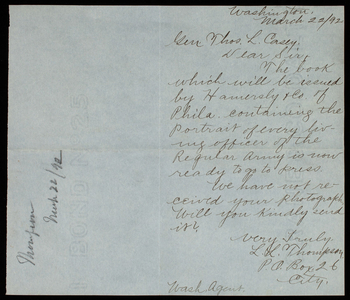 Washington.
March 22/92
Gen Thos. L. Casey.
Dear Sir.
The book
which will be issued
by Hamersly & Co of
Phila. containing the
Portrait of every liv-
ing officer of the
Regular Army is now
ready to go to press.
We have not re-
ceived your photograph
Will you kindly send
it?
Very Truly.
L. K. Thompson
P.O. Box 26
City.
Wash. Agent.
Thompson
March 22/92